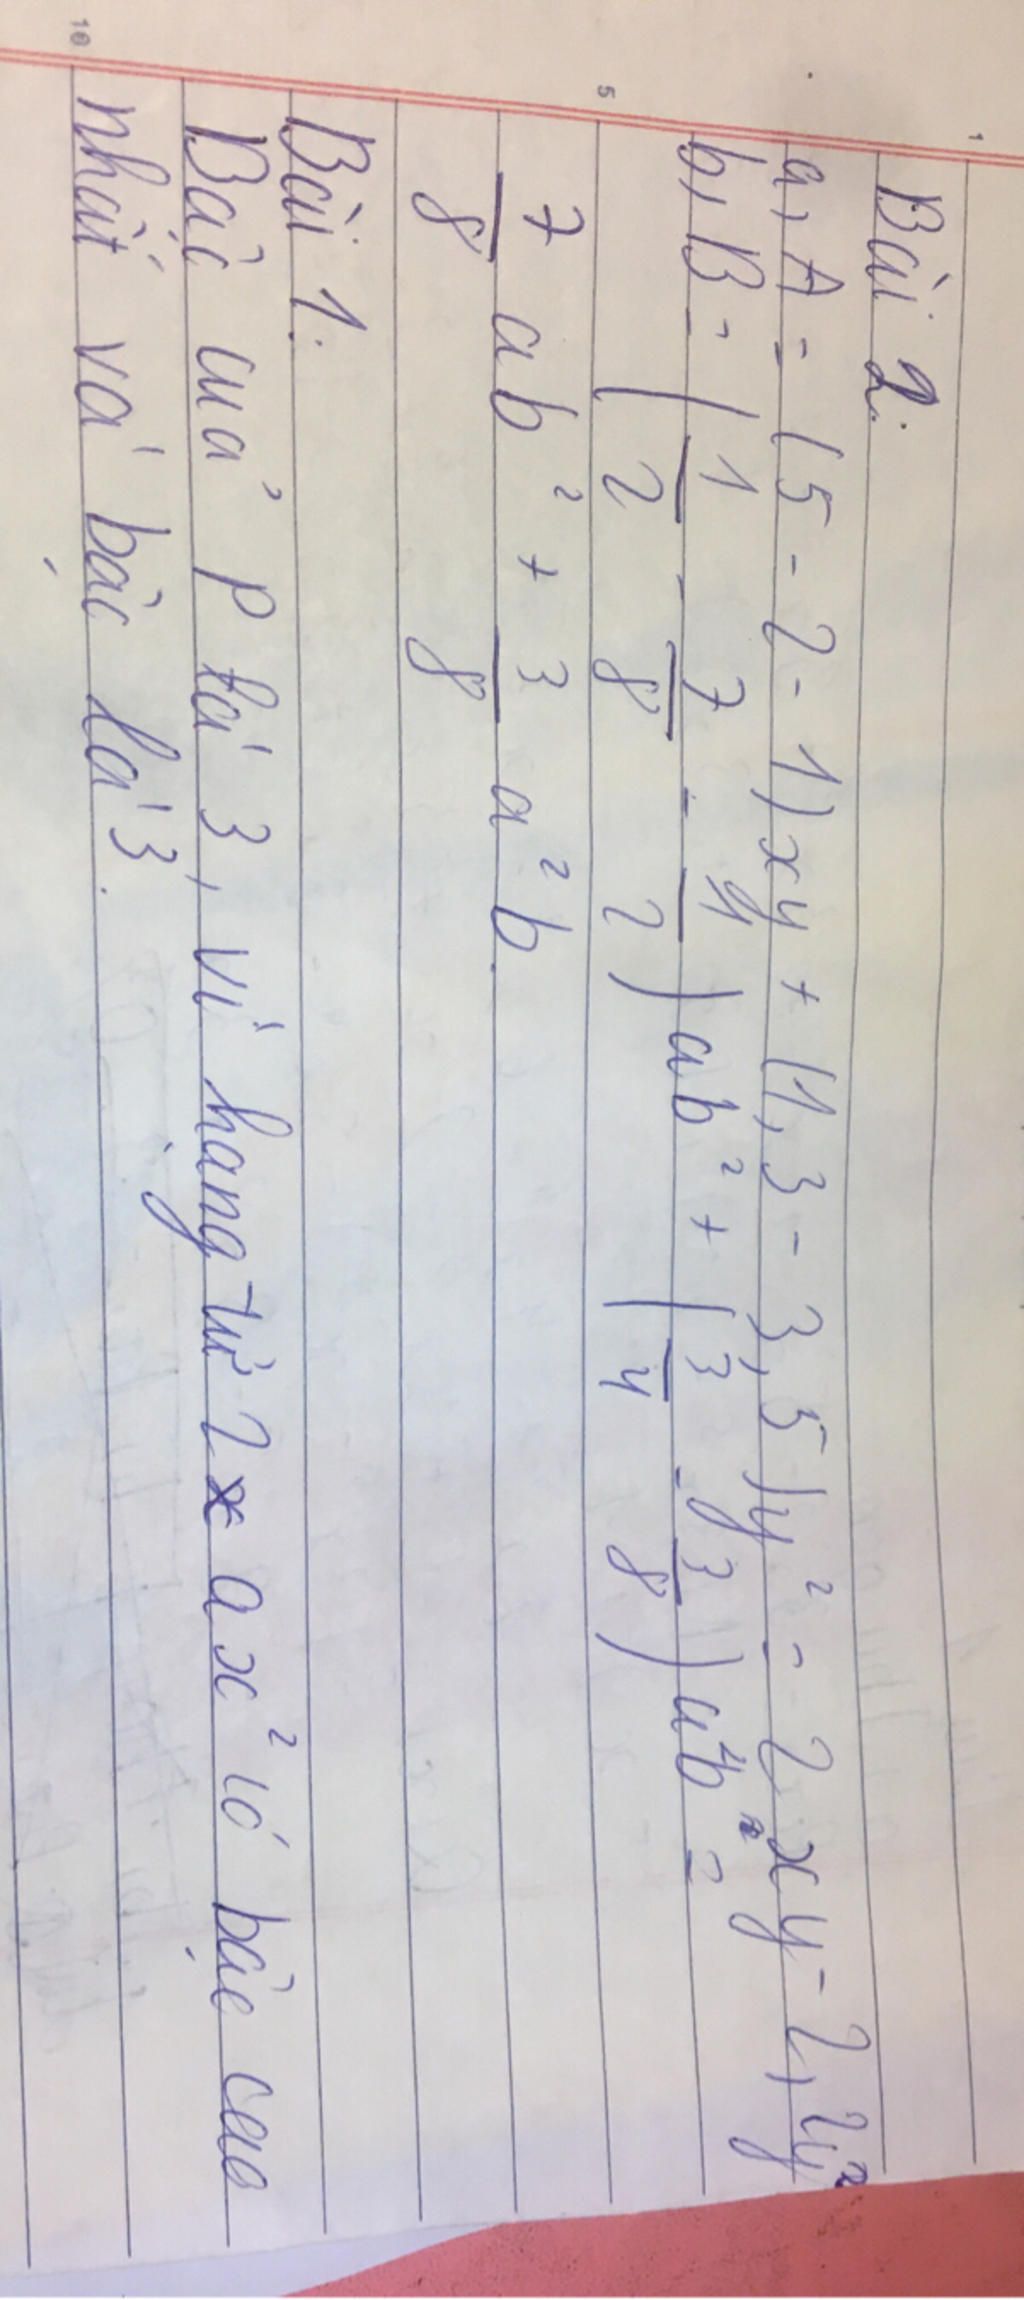 Bài 2.
a, A = (5 - 2 - 1) xy + (1,3 - 3,5) y² = 2xy - 2,2y²
b, B = (1/2 - 7/8 - 1/2) ab² + (3/4 - 3/8) a²b =
7/8 ab² + 3/8 a²b.
Bài 1.
Bậc của P là 3, vì hạng tử 2 ax² có bậc cao
nhất và bậc là 3.
1
5
10